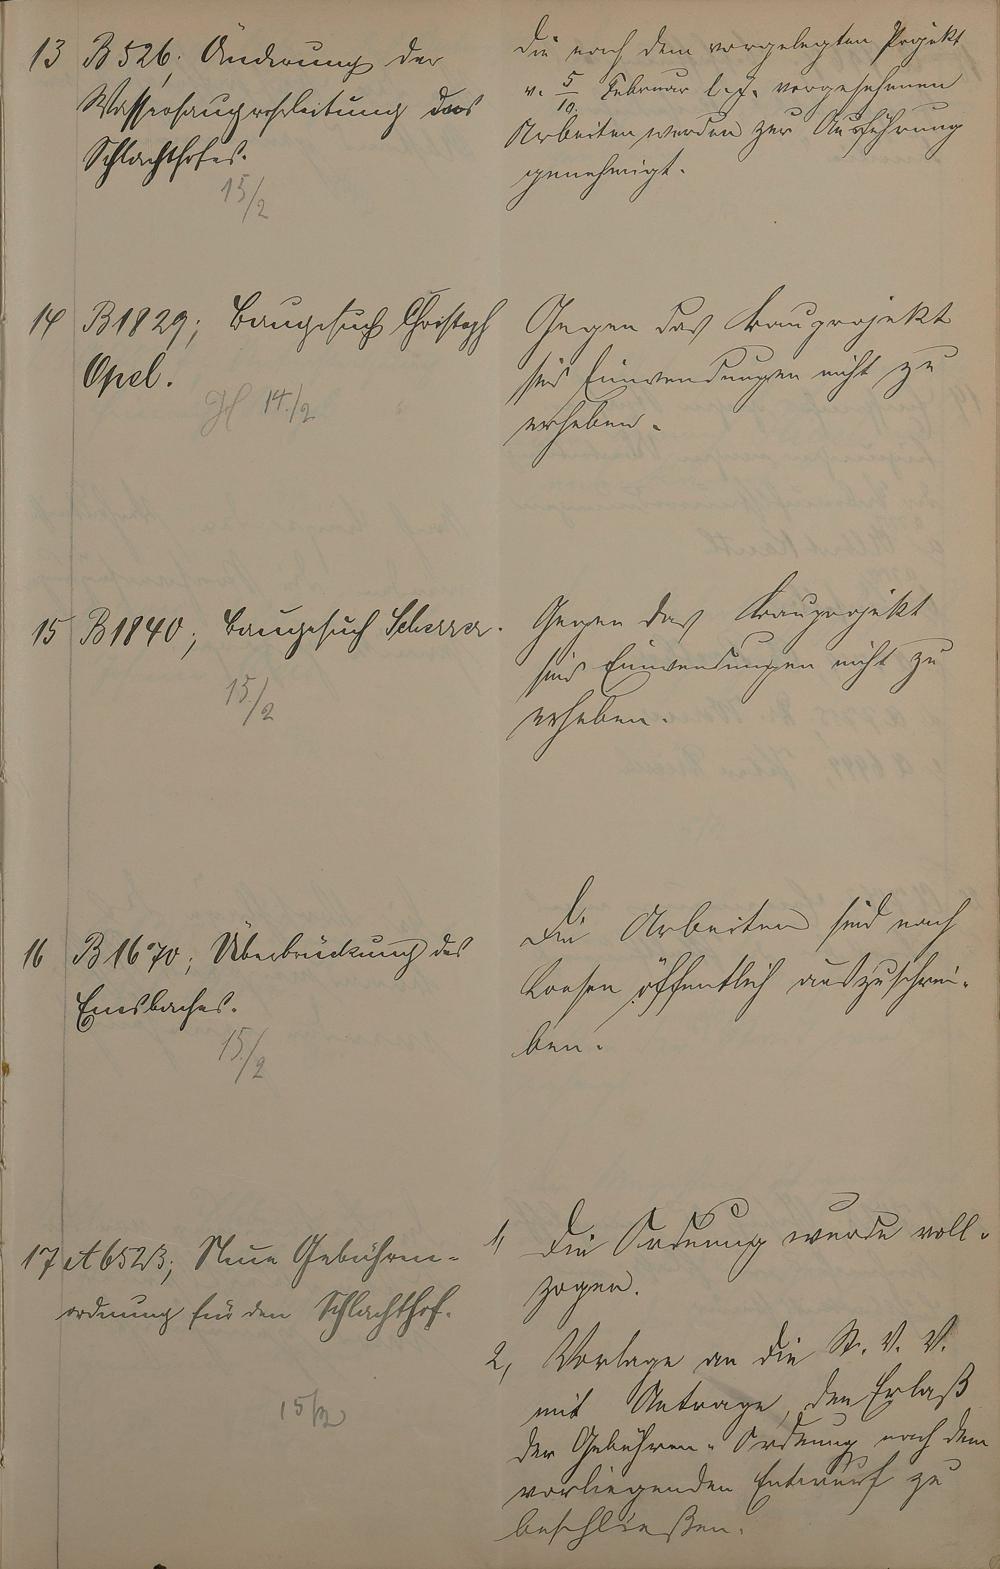 13 B 526; Änderung der
Wassersaugrohrleitung des
Schlachthofes.
15/2
Die nach dem vorgelegten Projekt
v. 5/10. Februar l. J. vorgesehenen
Arbeiten werden zur Ausführung
genehmigt.
14 B 1829; Baugesuch Christoph
Opel.
14./2
Gegen das Bauprojekt
sind Einwendungen nicht zu
erheben.
15 B 1840; Baugesuch Scherer.
15./2
Gegen das Bauprojekt
sind Einwendungen nicht zu
erheben.
16 B 1670; Überbrückung des
Emsbaches.
15./2
Die Arbeiten sind nach
Losen öffentlich auszuschrei-
ben.
17 A 6523; Neue Gebühren-
ordnung für den Schlachthof.
15/2
1, Die Ordnung wurde voll-
zogen.
2, Vorlage an die St. V. V.
mit Antrage, den Erlaß
der Gebühren-Ordnung nach dem
vorliegenden Entwurf zu
beschließen.